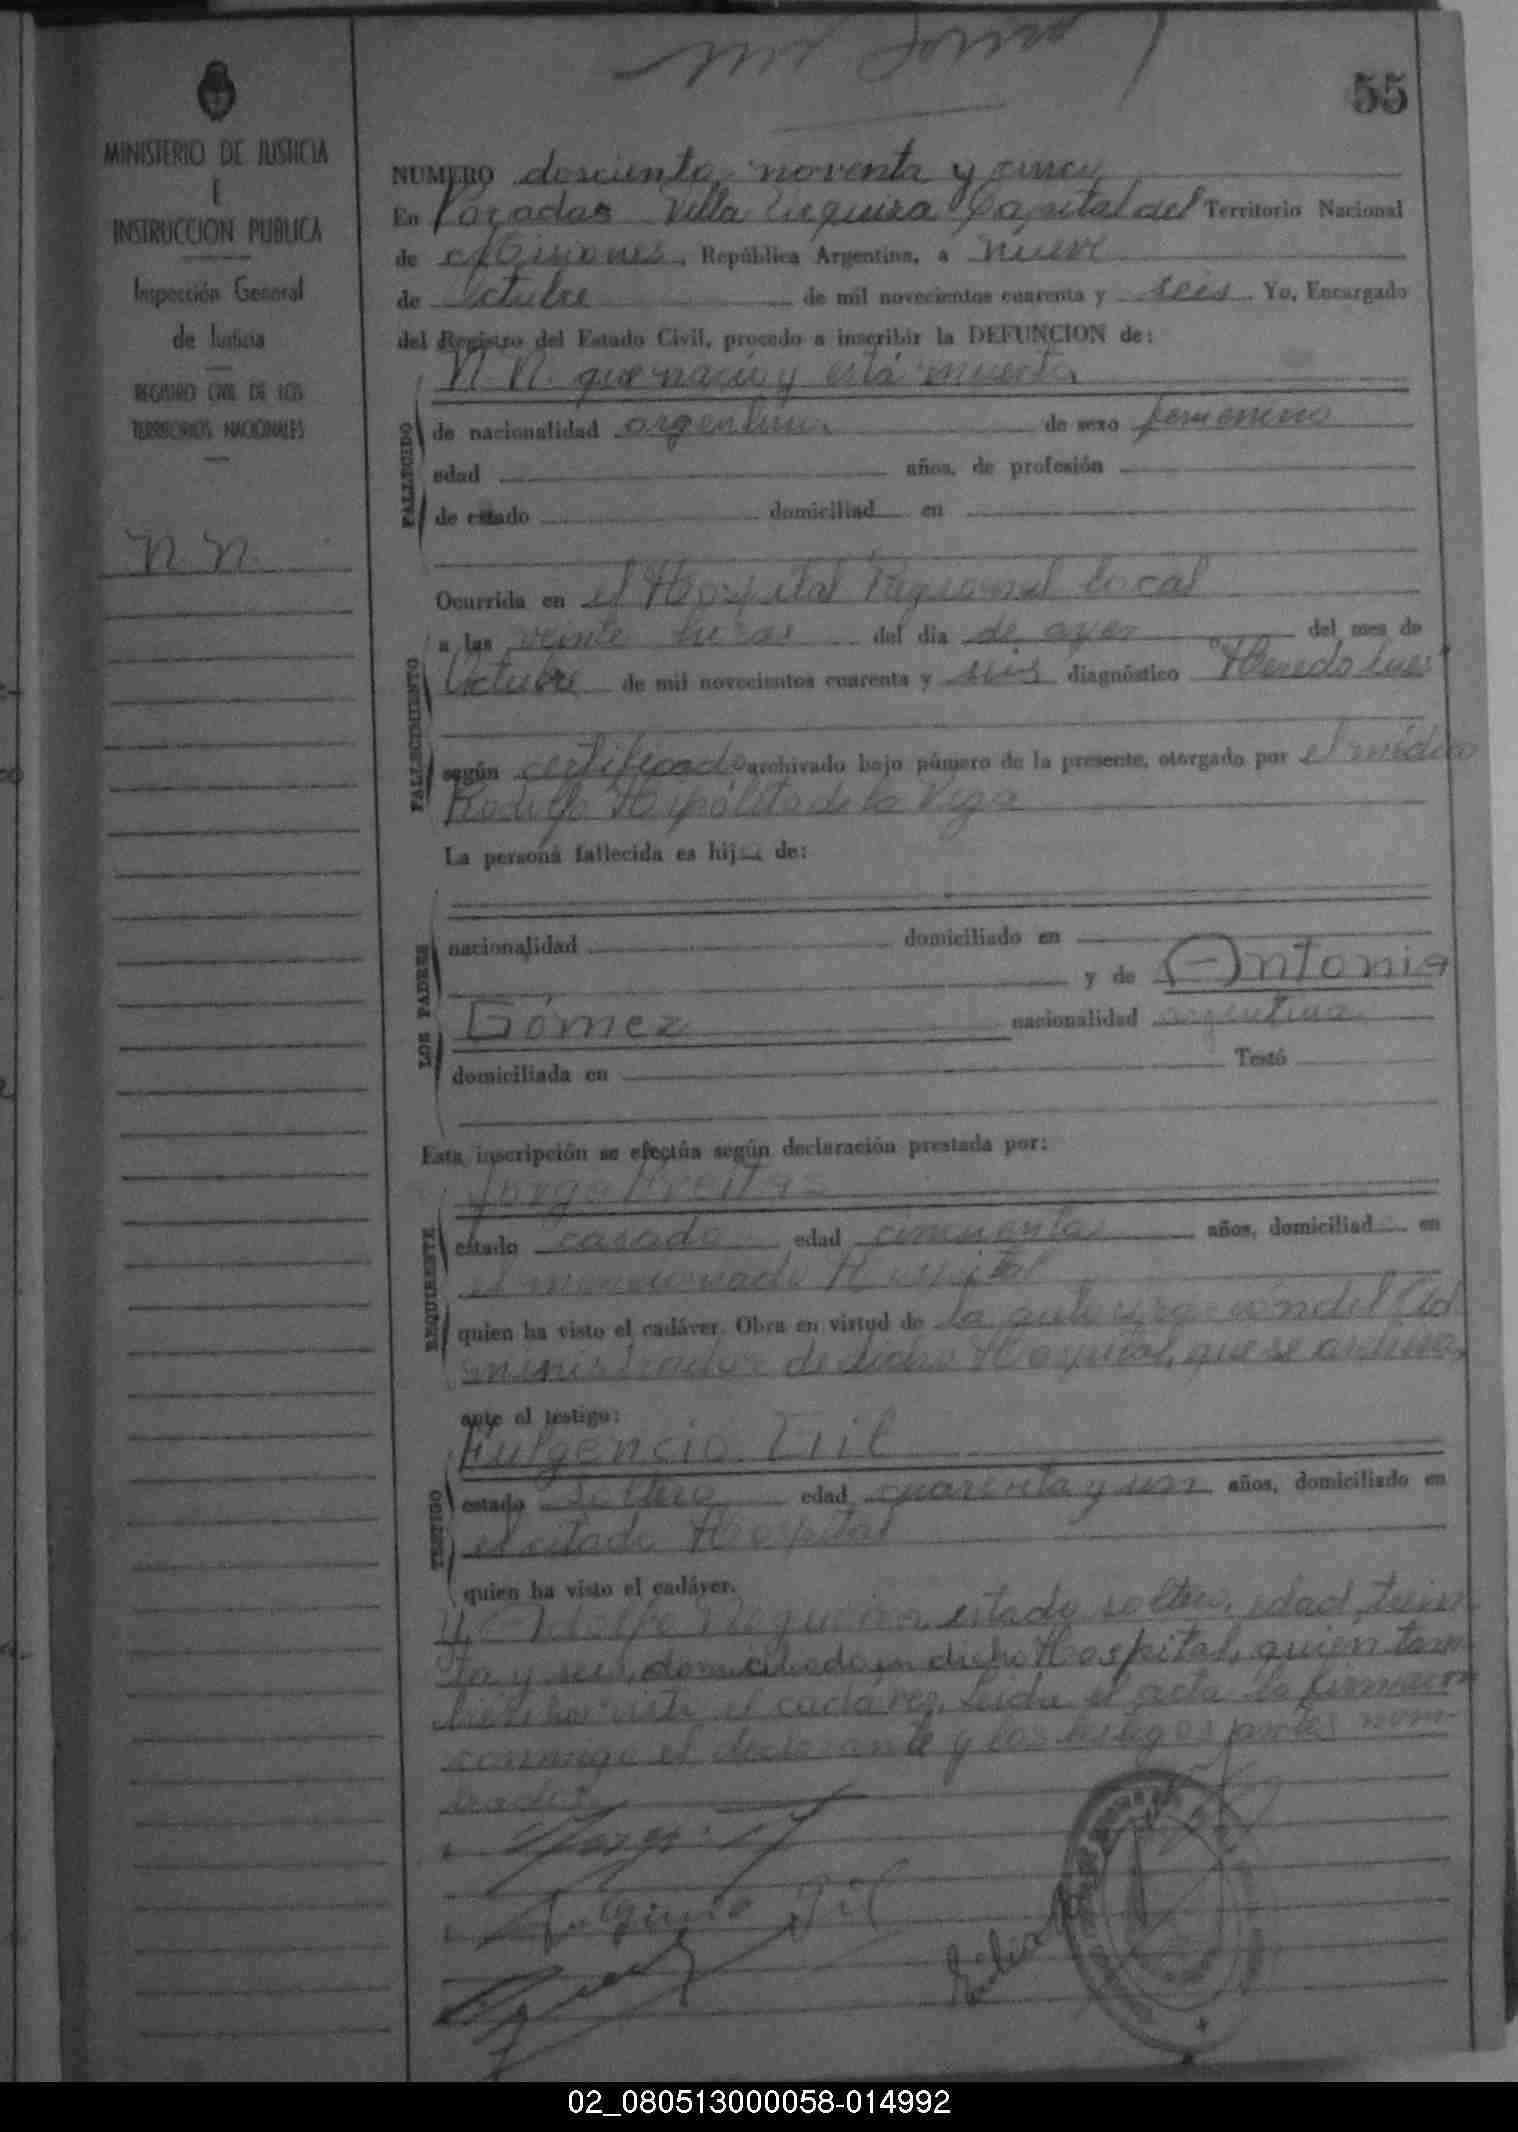 55
MINISTERIO DE JUSTICIA
E
INSTRUCCION PUBLICA
Inspección General
de Justicia
REGISTRO CIVIL DE LOS
TERRITORIOS NACIONALES
N. N.
NUMERO doscientos noventa y cinco
En Posadas Villa Urquiza Capital del Territorio Nacional
de Misiones, República Argentina, a nueve
de Octubre de mil novecientos cuarenta y seis. Yo, Encargado
del Registro del Estado Civil, procedo a inscribir la DEFUNCION de:
N. N. que nació y está muerta
FALLECIDO
de nacionalidad argentina de sexo femenino
edad años, de profesión
de estado domiciliad en
Ocurrida en el Hospital Regional local
FALLECIMIENTO
a las veinte horas del día de ayer del mes de
Octubre de mil novecientos cuarenta y seis diagnóstico "Heredo lues"
según certificado archivado bajo número de la presente, otorgado por el médico
Rodolfo Hipólito de la Vega
La persona fallecida es hija de:
LOS PADRES
nacionalidad domiciliado en
y de Antonia
Gómez nacionalidad argentina
domiciliada en Testó
Esta inscripción se efectúa según declaración prestada por:
REQUIRENTE
Jorge Freitas
estado casado edad cincuenta años, domiciliado en
el mencionado Hospital
quien ha visto el cadáver. Obra en virtud de la autorización del Ad
ministrador de dicho Hospital, que se archiva,
ante el testigo:
TESTIGO
Fulgencio Gil
estado soltero edad cuarenta y un años, domiciliado en
el citado Hospital
quien ha visto el cadáver.
y Adolfo estado soltero, edad trein
ta y seis, domiciliado en dicho Hospital, quien tam
bién ha visto el cadáver. Leída el acta la firmaron
conmigo el declarante y los testigos antes nom-
brados.
Fulgencio Gil
02_080513000058-014992